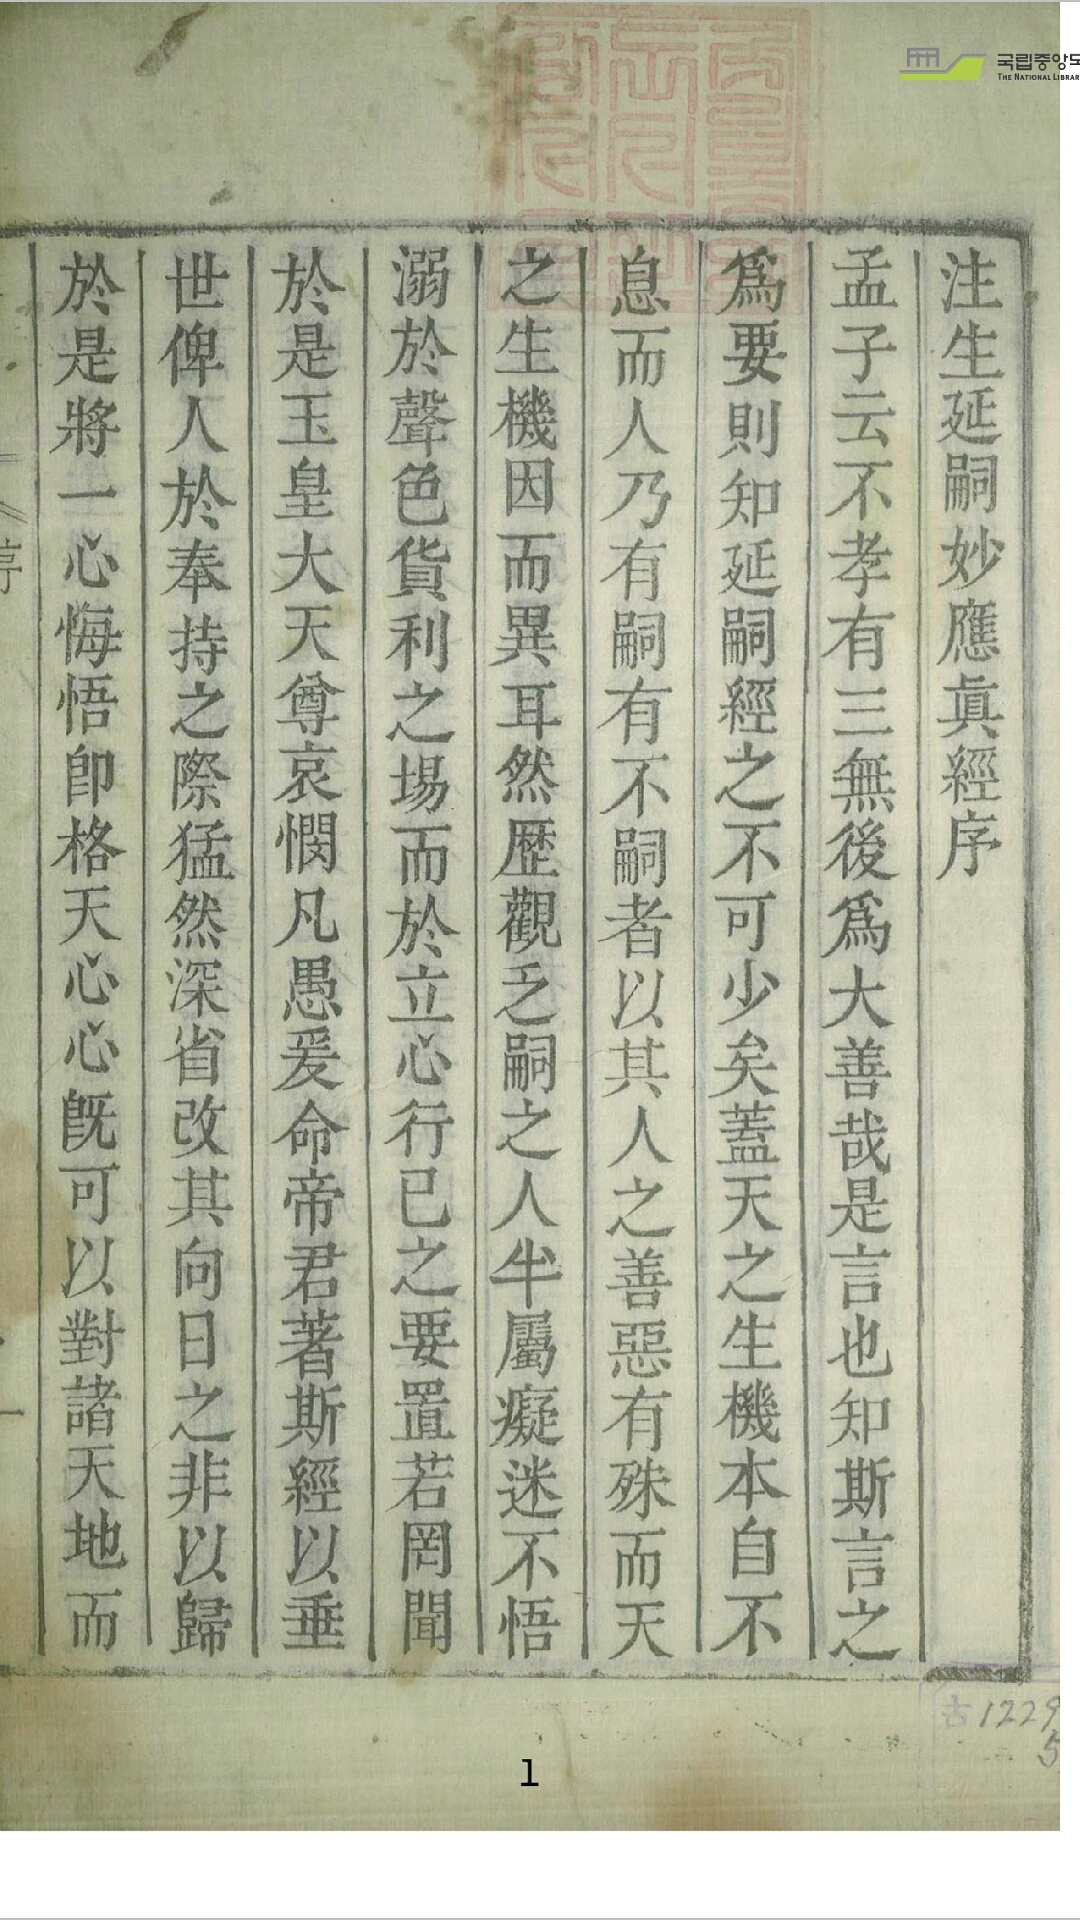 注生延嗣妙應眞經序
孟子云不孝有三無後爲大善哉是言也知斯言之
爲要則知延嗣經之不可少矣蓋天之生機本自不
息而人乃有嗣有不嗣者以其人之善惡有殊而天
之生機因而異耳然歷觀乏嗣之人半屬癡迷不悟
溺於聲色貨利之場而於立心行已之要置若罔聞
於是玉皇大天尊哀憫凡愚爰命帝君著斯經以垂
世俾人於奉持之際猛然深省改其向日之非以歸
於是將一心悔悟卽格天心心旣可以對諸天地而
序
一
국립중앙도
THE NATIONAL LIBRAR
古1229
5
1